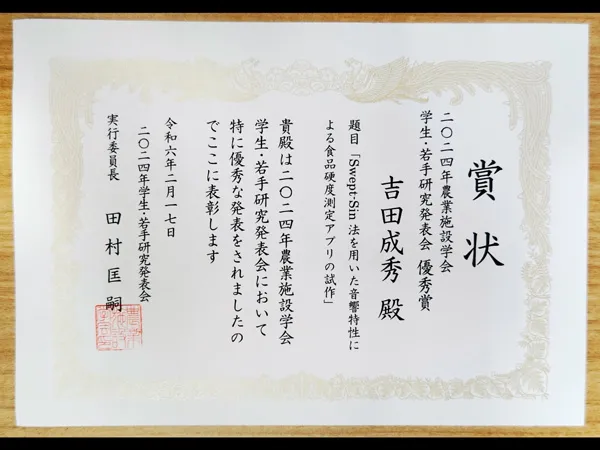 賞状
二〇二四年農業施設学会
学生・若手研究発表会 優秀賞
吉田成秀 殿
題目「Swept-Sin 法を用いた音響特性に
よる食品硬度測定アプリの試作」
貴殿は二〇二四年農業施設学会
学生・若手研究発表会において
特に優秀な発表をされましたの
でここに表彰します
令和六年二月一七日
二〇二四年学生・若手研究発表会
実行委員長 田村匡嗣